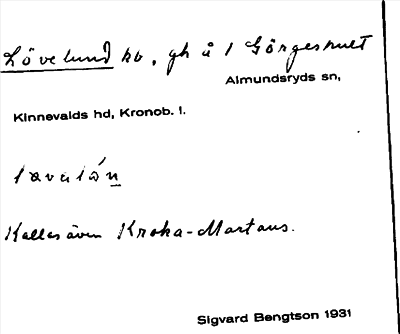 Lövelund hv, gh å 1 Görgeshult
Almundsryds sn,
Kinnevalds hd, Kronob. l.
Kallas även Kroka-Martans.
Sigvard Bengtson 1931